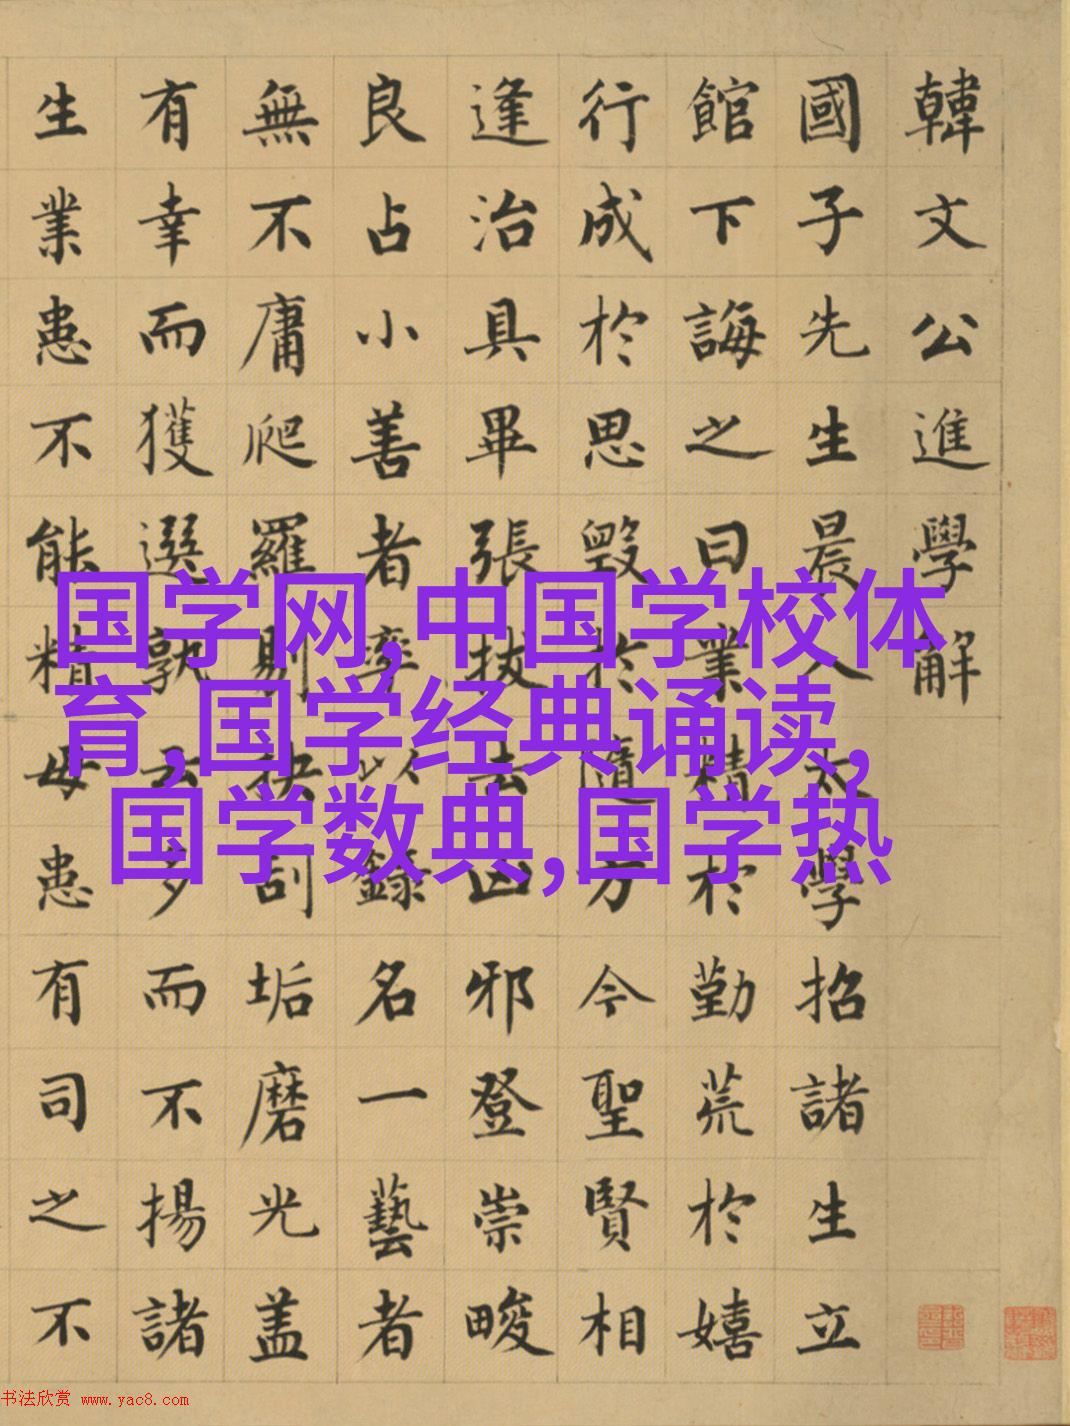 韓文公進學解
國子先生晨入太學招諸生立
館下誨之曰業精於勤荒於嬉
行成於思毀於隨方今聖賢相
逢治具畢張拔去凶邪登崇畯
良占小善者率以錄名一藝者
無不庸爬羅剔抉刮垢磨光盖
有幸而獲選孰云多而不揚諸
生業患不能精毋患有司之不
国学网,中国学校体
育,国学经典诵读,
国学数典,国学热
书法欣赏 www.yac8.com